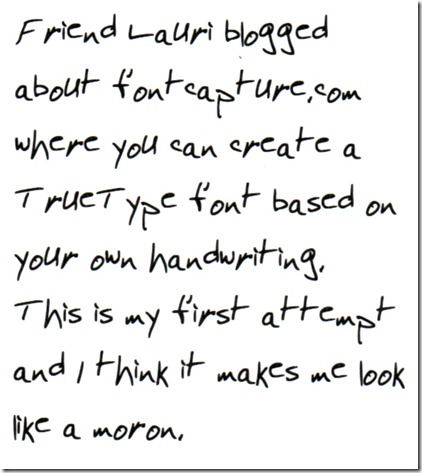 Friend Lauri blogged
about fontcapture.com
where you can create a
TrueType font based on
your own handwriting.
This is my first attempt
and I think it makes me look
like a moron.